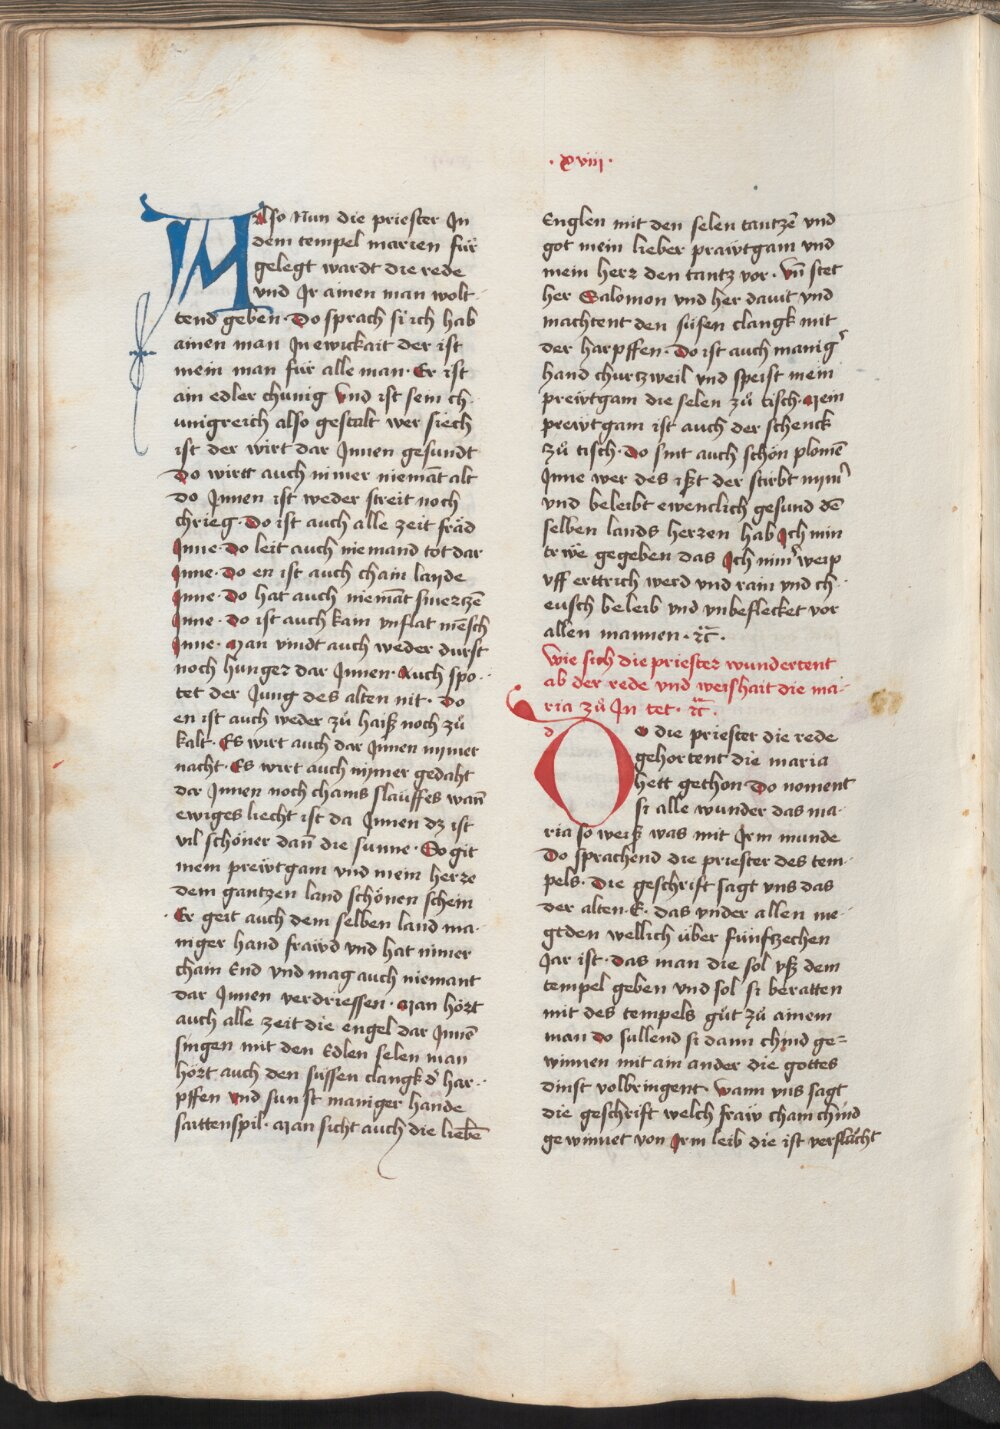 · xviij ·
Also Nun die priester In
dem tempel marien für
gelegt wardt die rede
vnd Ir ainen man wolt-
tend geben· Do sprach si ich hab
ainen man In ewickait der ist
mein man für alle man· Er ist
ain edler chunig Vnd ist sein ch
unigreich also gestalt wer siech
ist der wirt dar Innen gesundt
Do wirtt auch nimer niemāt alt
do Innen ist weder streit noch
chrieg· Do ist auch alle zeit fräd
Inne· Do leit auch niemand tot dar
Inne· Do en ist auch chain layde
Inne· Do hat auch niemāt smertzē
Inne· Do ist auch kain vnflat mēsch
Inne· Man vindt auch weder durst
noch hunger dar Innen· Auch spo-
tet der Jung des alten nit· Do
en ist auch weder zů haiß noch zů
kalt· Es wirt auch dar Innen nymer
nacht· Es wirt auch nymer gedaht
dar Innen noch chains slauffes wañ
ewiges liecht ist da Innen dz ist
vil schöner dañ die sunne· So git
mein prewtgam vnd mein herze
dem gantzen land schönen schein
· Er geit auch dem selben land ma-
niger hand frawd vnd hat nimer
chain End vnd mag auch niemant
dar Innen verdriessen· Man hört
auch alle zeit die engel dar Innē
singen mit den Edlen selen man
hört auch den süssen clangk d' har-
pffen vnd sunst maniger hande
saittenspil· Man sicht auch die liebē
Englen mit den selen tantzē vnd
got mein lieber prawtgam vnd
mein herz den tantz vor· vñ stet
her Salomon vnd her dauit vnd
machtent den süsen clangk mit
der harpffen· Do ist auch manig'
hand churtzweil vnd speist mein
prewtgam die selen zů tisch· Mein
prewtgam ist auch der schenck
zů tisch· do sint auch schön plomē
Inne wer des ißt der stirbt nym'
vnd beleibt ewenclich gesund dē
selben lands herzen hab Ich min
trwe gegeben das Ich nim' weip
vff erttrich werd vnd rain vnd ch-
eusch beleib vnd vnbeflecket vor
allen mannen· ꝛc̄·
Wie sich die priester wundertent
ab der rede vnd weishait die ma-
ria zů In tet· ꝛc̄·
Do die priester die rede
gehortent die maria
hett gethon· Do noment
si alle wunder das ma-
ria so weiß was mit Irm munde
Do sprachend die priester des tem-
pels· Die geschrift sagt vns das
der alten· E· das vnder allen me-
gtden wellich über fünfzechen
Jar ist· das man die sol vß dem
tempel geben vnd sol si beratten
mit des tempels gůt zů ainem
man do sullend si dann chind ge=
winnen mit ain ander die gottes
dinst volbringent· wann vns sagt
die geschrift welch fraw chain chind
gewinnet von Irm leib die ist verflůcht